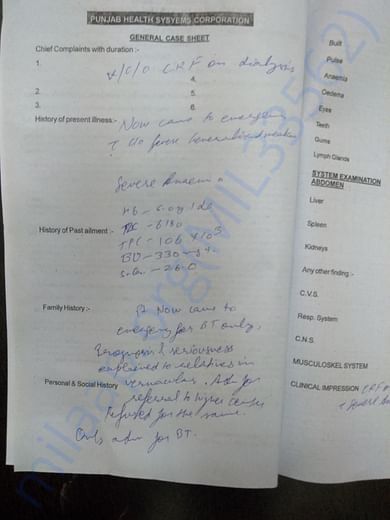 PUNJAB HEALTH SYSYEMS CORPORATION
GENERAL CASE SHEET
Chief Complaints with duration :-
k/c/o CRF on dialysis
1.
4.
2.
5.
3.
6.
History of present illness:- Now came to emergency
c c/o fever Generalized weakness
Severe Anaemia
Hb - 6.0 g/dl
History of Past ailment :- TLC - 6180
TPC - 106 x 10³
BU - 330 mg
S. Cr - 26.0
Family History :- Pt Now came to
emergency for BT only.
Prognosis & seriousness
explained to relatives in
Personal & Social History vernacular. Adv for
referral to higher center
Refused for the same.
Only adm for BT.
Built
Pulse
Anaemia
Oedema
Eyes
Teeth
Gums
Lymph Glands
SYSTEM EXAMINATION
ABDOMEN
Liver
Spleen
Kidneys
Any other finding :-
C.V.S.
Resp. System
C.N.S.
MUSCULOSKEL SYSTEM
CLINICAL IMPRESSION CRF